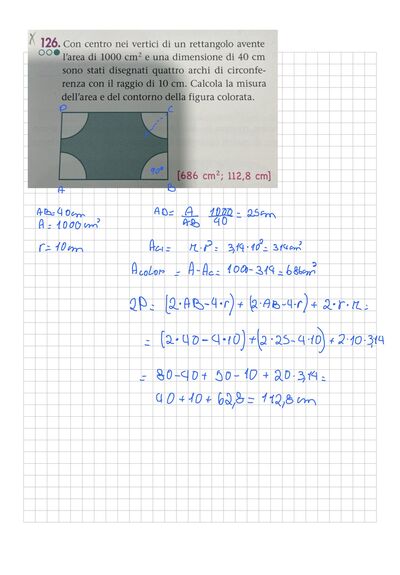 126. Con centro nei vertici di un rettangolo avente
l'area di 1000 cm² e una dimensione di 40 cm
sono stati disegnati quattro archi di circonfe-
renza con il raggio di 10 cm. Calcola la misura
dell'area e del contorno della figura colorata.
D C
90°
A B
[686 cm²; 112,8 cm]
AB = 40cm
A = 1000 cm²
r = 10cm
AD = A/AB 1000/40 = 25cm
Ac1 = π·r² = 3,14·10² = 314cm²
Acolor = A-Ac = 1000-314 = 686cm²
2P = (2·AB-4·r)+(2·AB-4·r)+2·r·π=
= (2·40-4·10)+(2·25-4·10)+2·10·3,14
= 80-40+50-10+20·3,14=
40+10+62,8=112,8cm